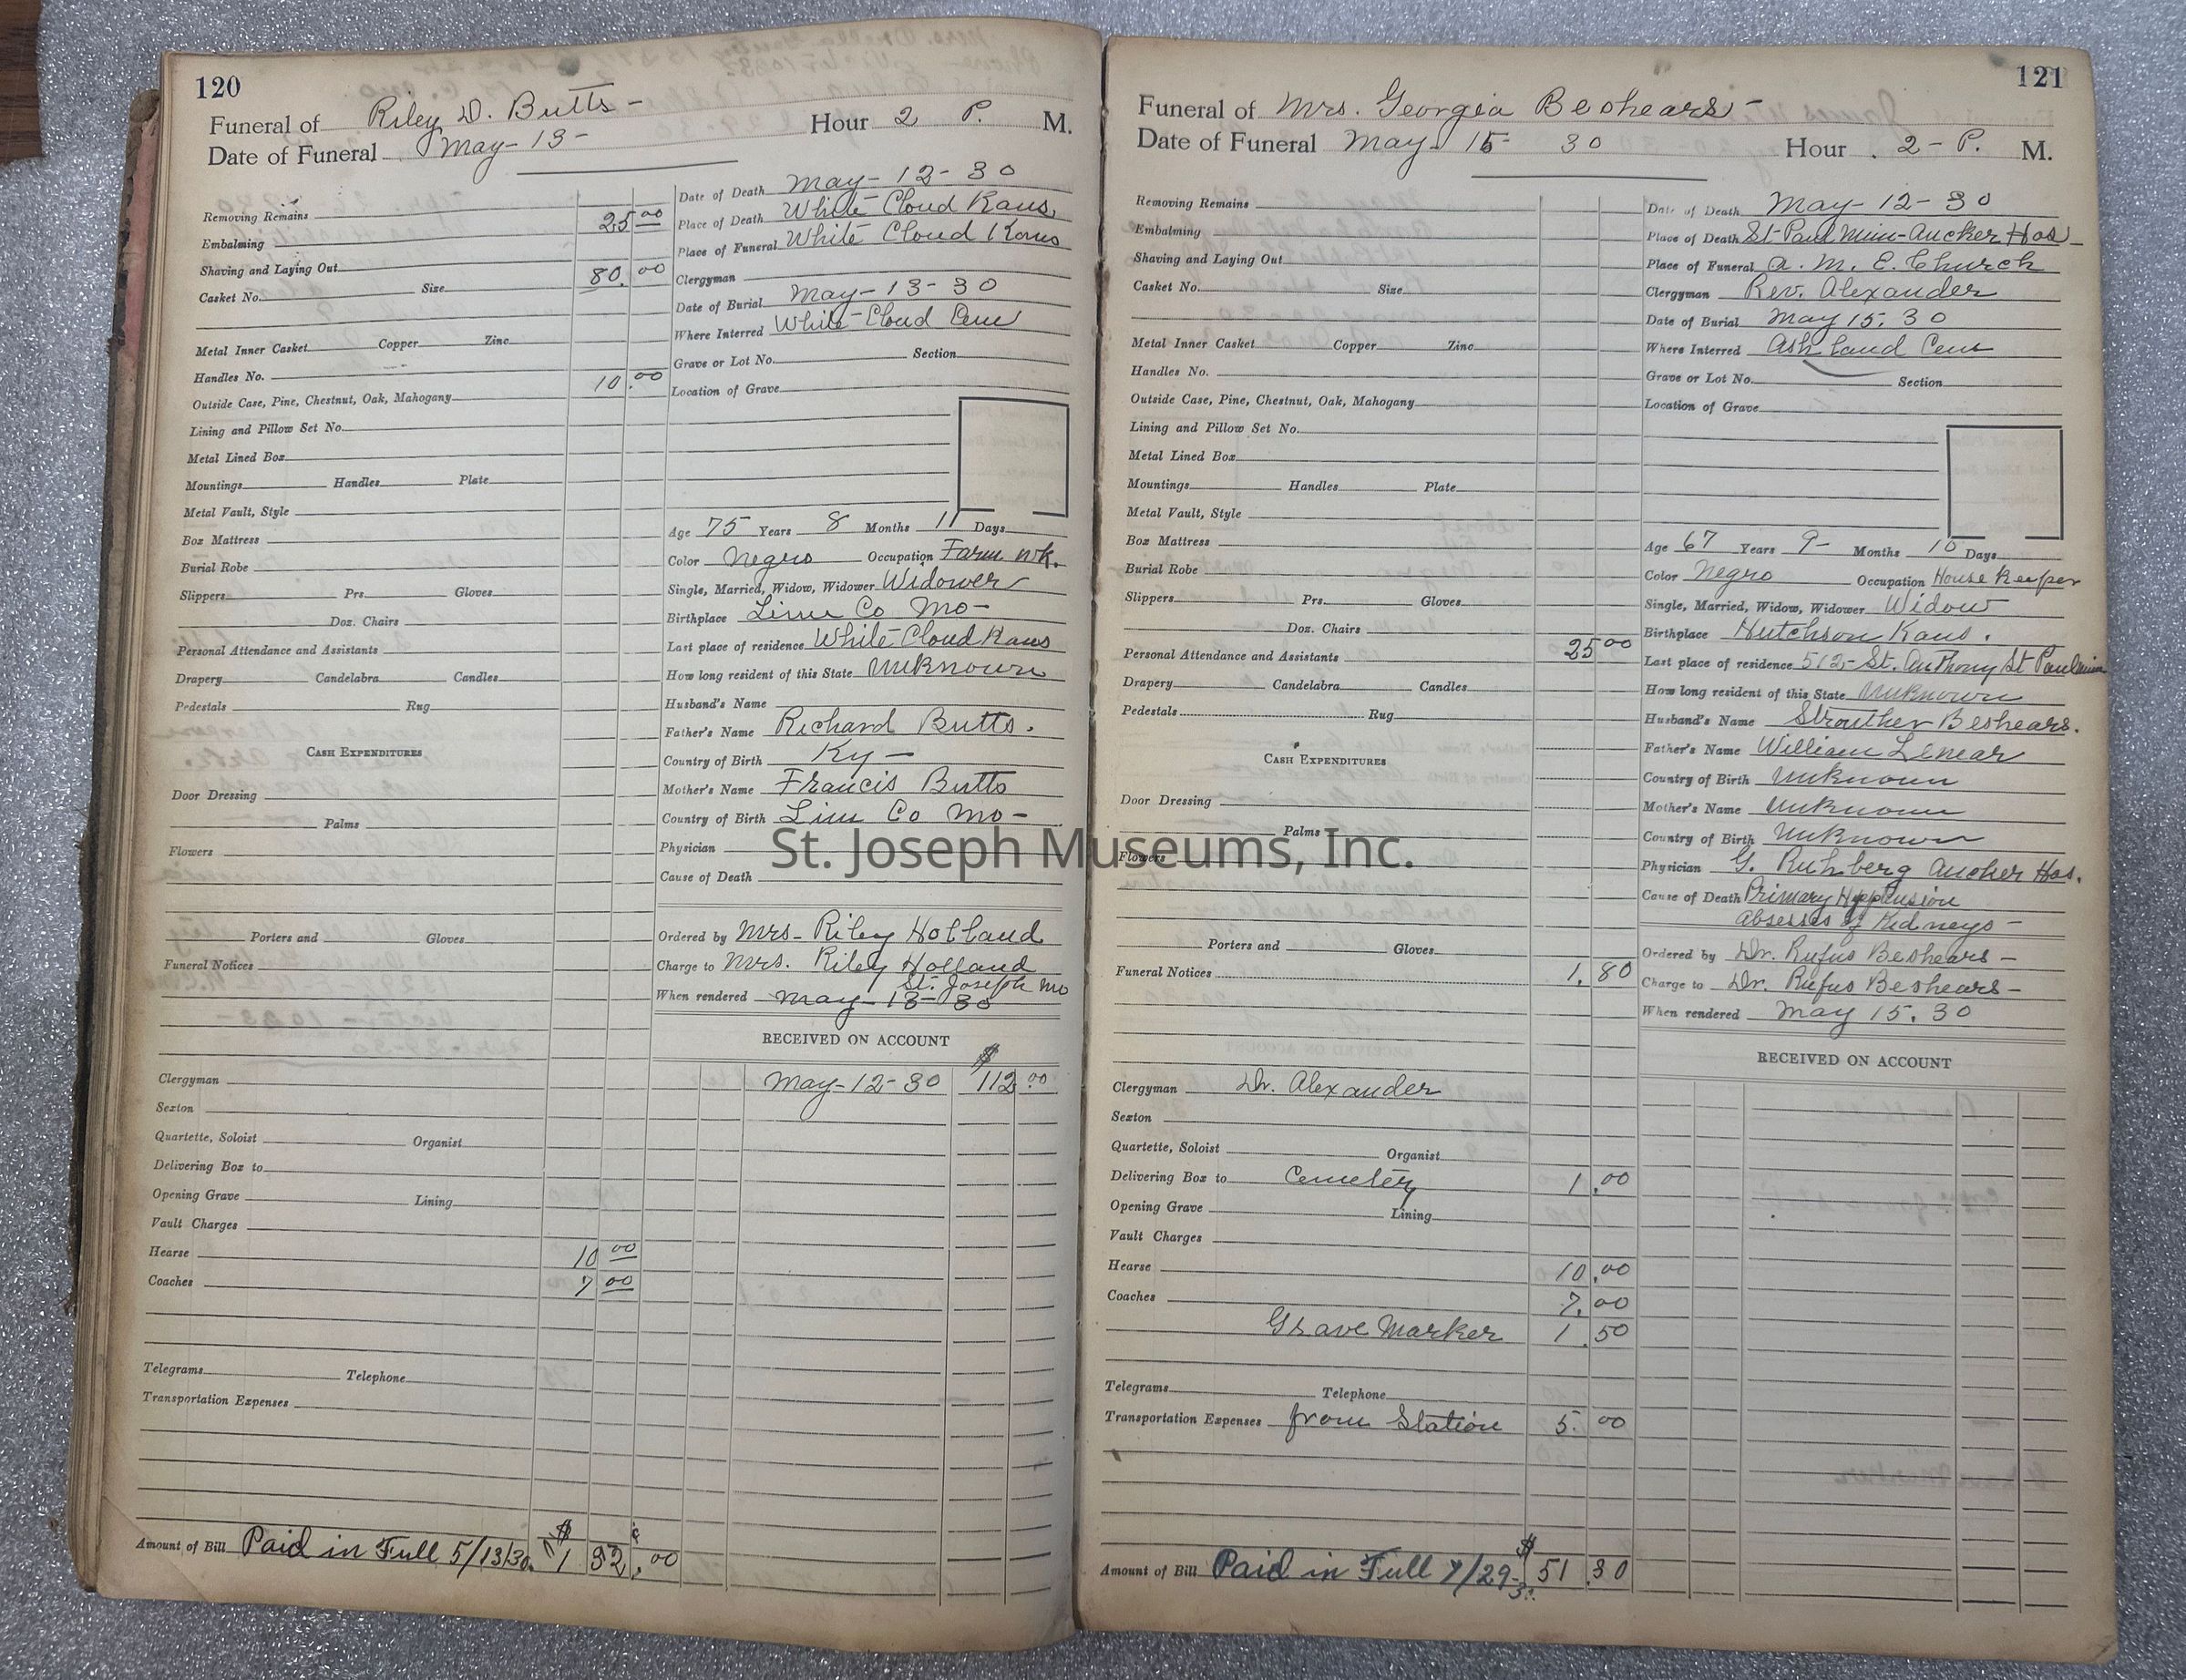 120
Funeral of Riley D. Butts - Hour 2 P. M.
Date of Funeral May - 13 -
Removing Remains
Embalming 25 00
Shaving and Laying Out
Casket No. Size 80. 00
Metal Inner Casket Copper Zinc
Handles No.
Outside Case, Pine, Chestnut, Oak, Mahogany 10.00
Lining and Pillow Set No.
Metal Lined Box
Mountings Handles Plate
Metal Vault, Style
Box Mattress
Burial Robe
Slippers Prs. Gloves
Doz. Chairs
Personal Attendance and Assistants
Drapery Candelabra Candles
Pedestals Rug
CASH EXPENDITURES
Door Dressing
Palms
Flowers
Porters and Gloves
Funeral Notices
Clergyman
Sexton
Quartette, Soloist Organist
Delivering Box to
Opening Grave Lining
Vault Charges
Hearse 10 00
Coaches 7 00
Telegrams Telephone
Transportation Expenses
Amount of Bill Paid in Full 5/13/30. $ 1 32.00 c
Date of Death May - 12 - 30
Place of Death White Cloud Kans
Place of Funeral White Cloud Kans
Clergyman
Date of Burial May - 13 - 30
Where Interred White Cloud Cem
Grave or Lot No. Section
Location of Grave
Age 75 Years 8 Months 11 Days
Color Negro Occupation Farm Wk.
Single, Married, Widow, Widower Widower
Birthplace Linn Co Mo -
Last place of residence White Cloud Kans
How long resident of this State Unknown
Husband's Name
Father's Name Richard Butts.
Country of Birth Ky -
Mother's Name Francis Butts
Country of Birth Linn Co Mo -
Physician
Cause of Death
Ordered by Mrs - Riley Holland
Charge to Mrs. Riley Holland
St. Joseph Mo
When rendered May - 13 - 30
RECEIVED ON ACCOUNT
May - 12 - 30 $ 112.00
121
Funeral of Mrs. Georgia Beshears -
Date of Funeral May 15 - 30 Hour 2 - P. M.
Removing Remains
Embalming
Shaving and Laying Out
Casket No. Size
Metal Inner Casket Copper Zinc
Handles No.
Outside Case, Pine, Chestnut, Oak, Mahogany
Lining and Pillow Set No.
Metal Lined Box
Mountings Handles Plate
Metal Vault, Style
Box Mattress
Burial Robe
Slippers Prs. Gloves
Doz. Chairs
Personal Attendance and Assistants 25 00
Drapery Candelabra Candles
Pedestals Rug
CASH EXPENDITURES
Door Dressing
Palms
Flowers
Porters and Gloves
Funeral Notices 1. 80
Clergyman Dr. Alexander
Sexton
Quartette, Soloist Organist
Delivering Box to Cemetery 1.00
Opening Grave Lining
Vault Charges
Hearse 10.00
Coaches 7.00
Grave Marker 1.50
Telegrams Telephone
Transportation Expenses from Station 5. 00
Amount of Bill Paid in Full 7/29-30 $ 51 30
Date of Death May - 12 - 30
Place of Death St Paul Minn - Ancker Hos -
Place of Funeral A. M. E. Church
Clergyman Rev. Alexander
Date of Burial May 15. 30
Where Interred Ashland Cem
Grave or Lot No. Section
Location of Grave
Age 67 Years 9 - Months 10 Days
Color Negro Occupation House Keeper
Single, Married, Widow, Widower Widow
Birthplace Hutchson Kans.
Last place of residence 512 - St. Anthony St Paul Minn
How long resident of this State Unknown
Husband's Name Strouther Beshears.
Father's Name William Lenear
Country of Birth Unknown
Mother's Name Unknown
Country of Birth Unknown
Physician G. Ruhberg Ancker Hos.
Cause of Death Primary
Absesses of Kidneys -
Ordered by Dr. Rufus Beshears -
Charge to Dr. Rufus Beshears -
When rendered May 15. 30
RECEIVED ON ACCOUNT
St. Joseph Museums, Inc.